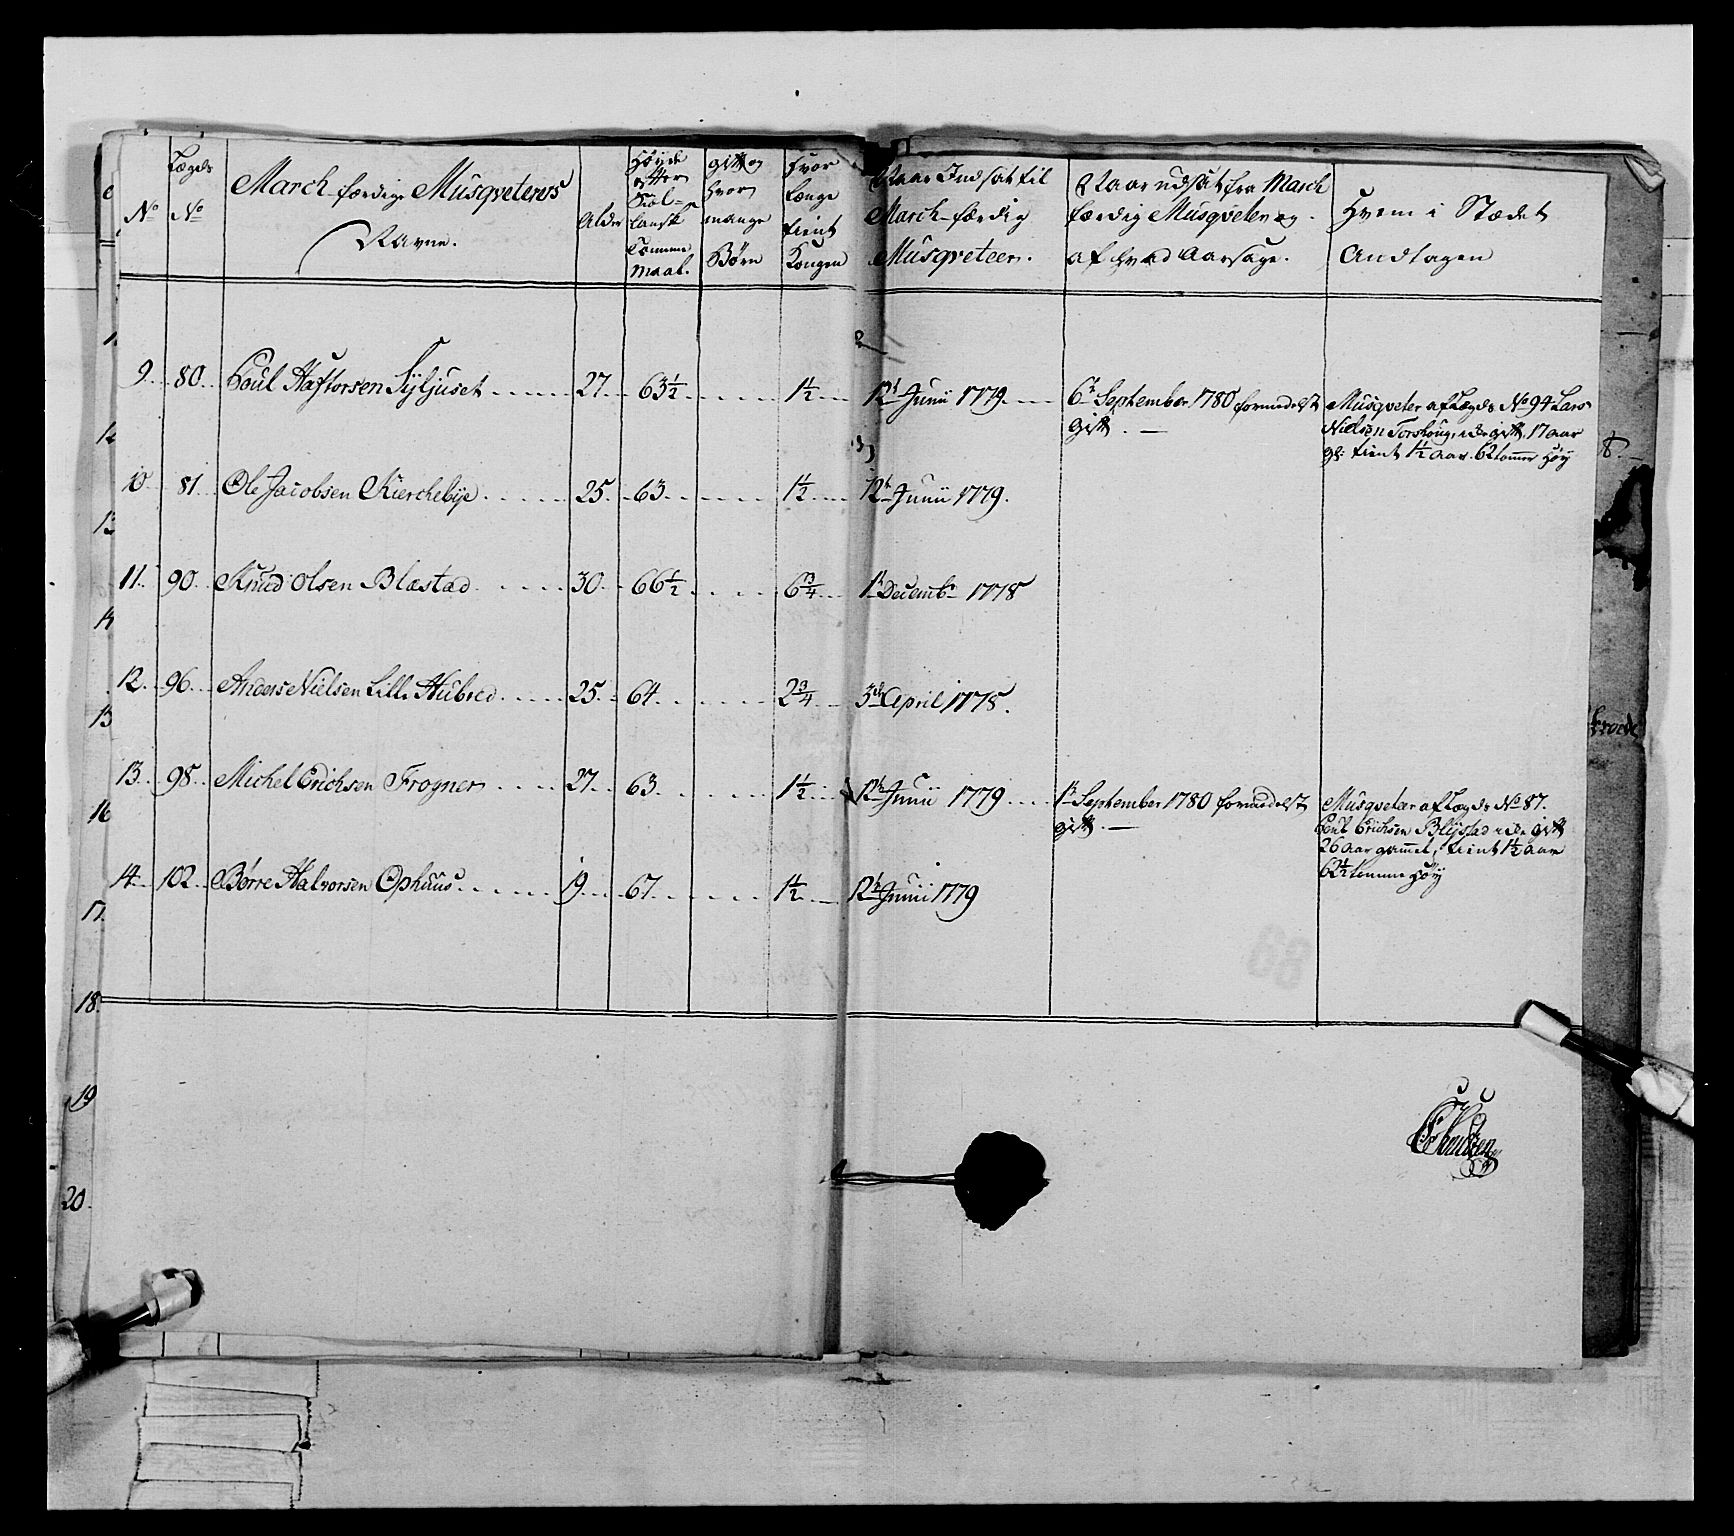 No
Lægds
No
March-færdige Musqveteres
Navne.
Alder
Høyde
efter
Siæl-
landsk
Tomme
maal.
gift og
hvor
mange
Børn
Hvor
længe
tient
Kongen
Naar Indsat til
March-færdig
Musqveteer.
Naar udsat fra March
færdig Musqveter og
af hvad Aarsage.
Hvem i Stædet
Andtagen
9. 80. Poul Haftorsen Syljuset 27. 63½ 1½ 12t Junii 1779. 6t September 1780 formedelst
gift.
Musqveter af Lægds No 94 Lars
Nielsen Torshoug, icke gift, 17 aar
gl: tient 1½ aar. 62 tommer høy
10. 81. Ole Jacobsen Kierchebye 25. 63. 1½ 12t Junii 1779.
11. 90. Knud Olsen Blæstad 30. 66½ 6¾ 1t Decembr 1778
12. 96. Anders Nielsen Lille Hubred 25. 64. 2¾ 3de April 1778.
13. 98. Michel Erichsen Frogner 27. 63. 1½ 12t Junii 1779 1t September 1780 formedelst
gift.
Musqveter af Lægds No 87.
Poul Erichsen Blystad icke gift
26 aar gammel, tient 1½ aar
62½ tomme høy
14. 102. Børre Halvorsen Ophuus 19. 67. 1½ 12t Junii 1779
68
17.
18.
19
20.